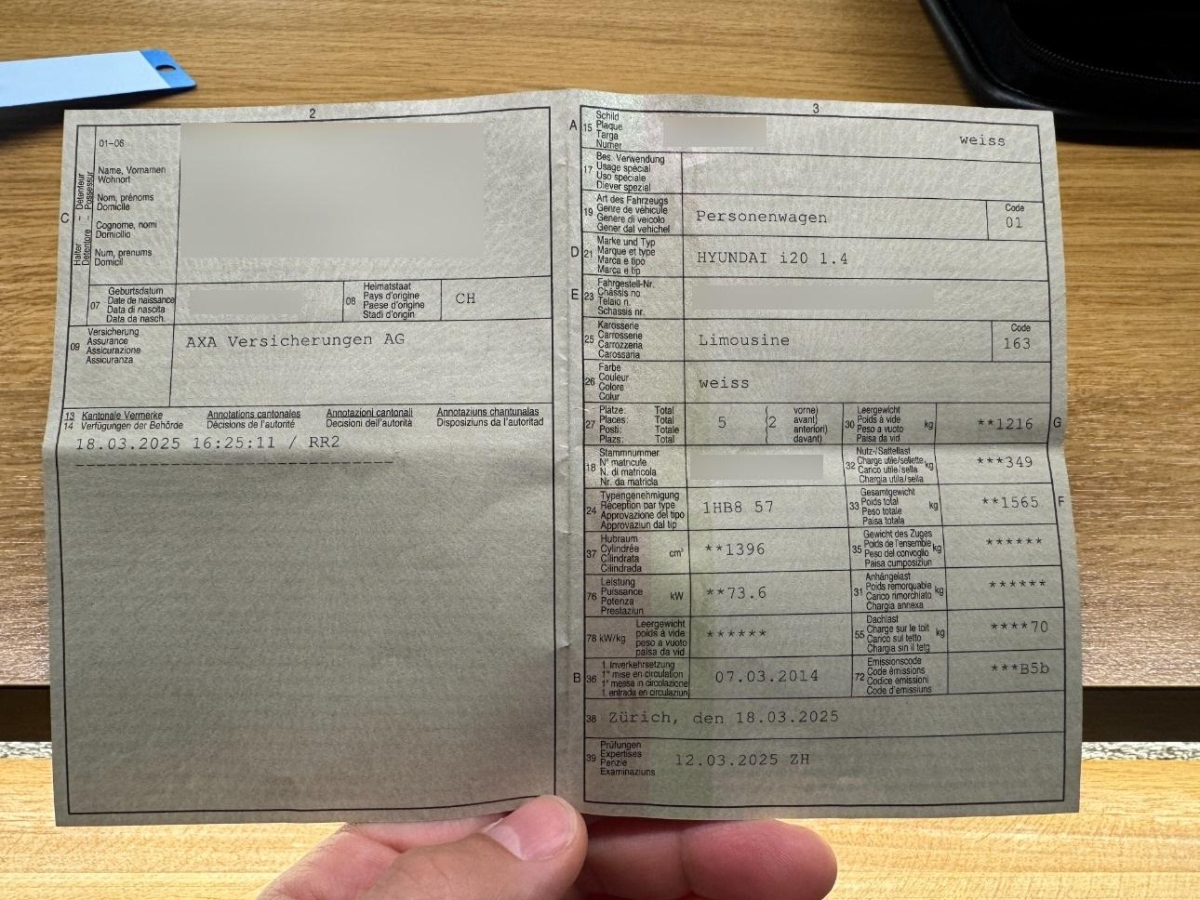 2
01-06
C
Halter - Détenteur
Detentore - Possessur
Name, Vornamen
Wohnort
Nom, prénoms
Domicile
Cognome, nomi
Domicilio
Num, prenums
Domicil
07
Geburtsdatum
Date de naissance
Data di nascita
Data da nasch.
08
Heimatstaat
Pays d'origine
Paese d'origine
Stadi d'origin
CH
09
Versicherung
Assurance
Assicurazione
Assicuranza
AXA Versicherungen AG
13 Kantonale Vermerke Annotations cantonales Annotazioni cantonali Annotaziuns chantunalas
14 Verfügungen der Behörde Décisions de l'autorité Decisioni dell'autorità Disposiziuns da l'autoritad
18.03.2025 16:25:11 / RR2
--------------------------------
3
A 15
Schild
Plaque
Targa
Numer
weiss
17
Bes. Verwendung
Usage spécial
Uso speciale
Diever spezial
19
Art des Fahrzeugs
Genre de véhicule
Genere di veicolo
Gener dal vehichel
Personenwagen
Code
01
D 21
Marke und Typ
Marque et type
Marca e tipo
Marca e tip
HYUNDAI i20 1.4
E 23
Fahrgestell-Nr.
Châssis no
Telaio n.
Schassis nr.
25
Karosserie
Carrosserie
Carrozzeria
Carossaria
Limousine
Code
163
26
Farbe
Couleur
Colore
Colur
weiss
27
Plätze: Total
Places: Total
Posti: Totale
Plazs: Total
5
(2
vorne)
avant)
anteriori)
davant)
30
Leergewicht
Poids à vide
Peso a vuoto
Paisa da vid
kg
**1216
G
18
Stammnummer
N° matricule
N. di matricola
Nr. da matricla
32
Nutz-/Sattellast
Charge utile/sellette
Carico utile/sella
Chargia utila/sella
kg
***349
24
Typengenehmigung
Réception par type
Approvazione del tipo
Approvaziun dal tip
1HB8 57
33
Gesamtgewicht
Poids total
Peso totale
Paisa totala
kg
**1565
F
37
Hubraum
Cylindrée
Cilindrata
Cilindrada
cm³
**1396
35
Gewicht des Zuges
Poids de l'ensemble
Peso del convoglio
Paisa cumposiziun
kg
******
76
Leistung
Puissance
Potenza
Prestaziun
kW
**73.6
31
Anhängelast
Poids remorquable
Carico rimorchiato
Chargia annexa
kg
******
78 kW/kg
Leergewicht
poids à vide
peso a vuoto
paisa da vid
******
55
Dachlast
Charge sur le toit
Carico sul tetto
Chargia sin il tetg
kg
****70
B 36
1. Inverkehrsetzung
1re mise en circulation
1a messa in circolazione
1. entrada en circulaziun
07.03.2014
72
Emissionscode
Code émissions
Codice emissioni
Code d'emissiuns
***B5b
38 Zürich, den 18.03.2025
39
Prüfungen
Expertises
Perizie
Examinaziuns
12.03.2025 ZH